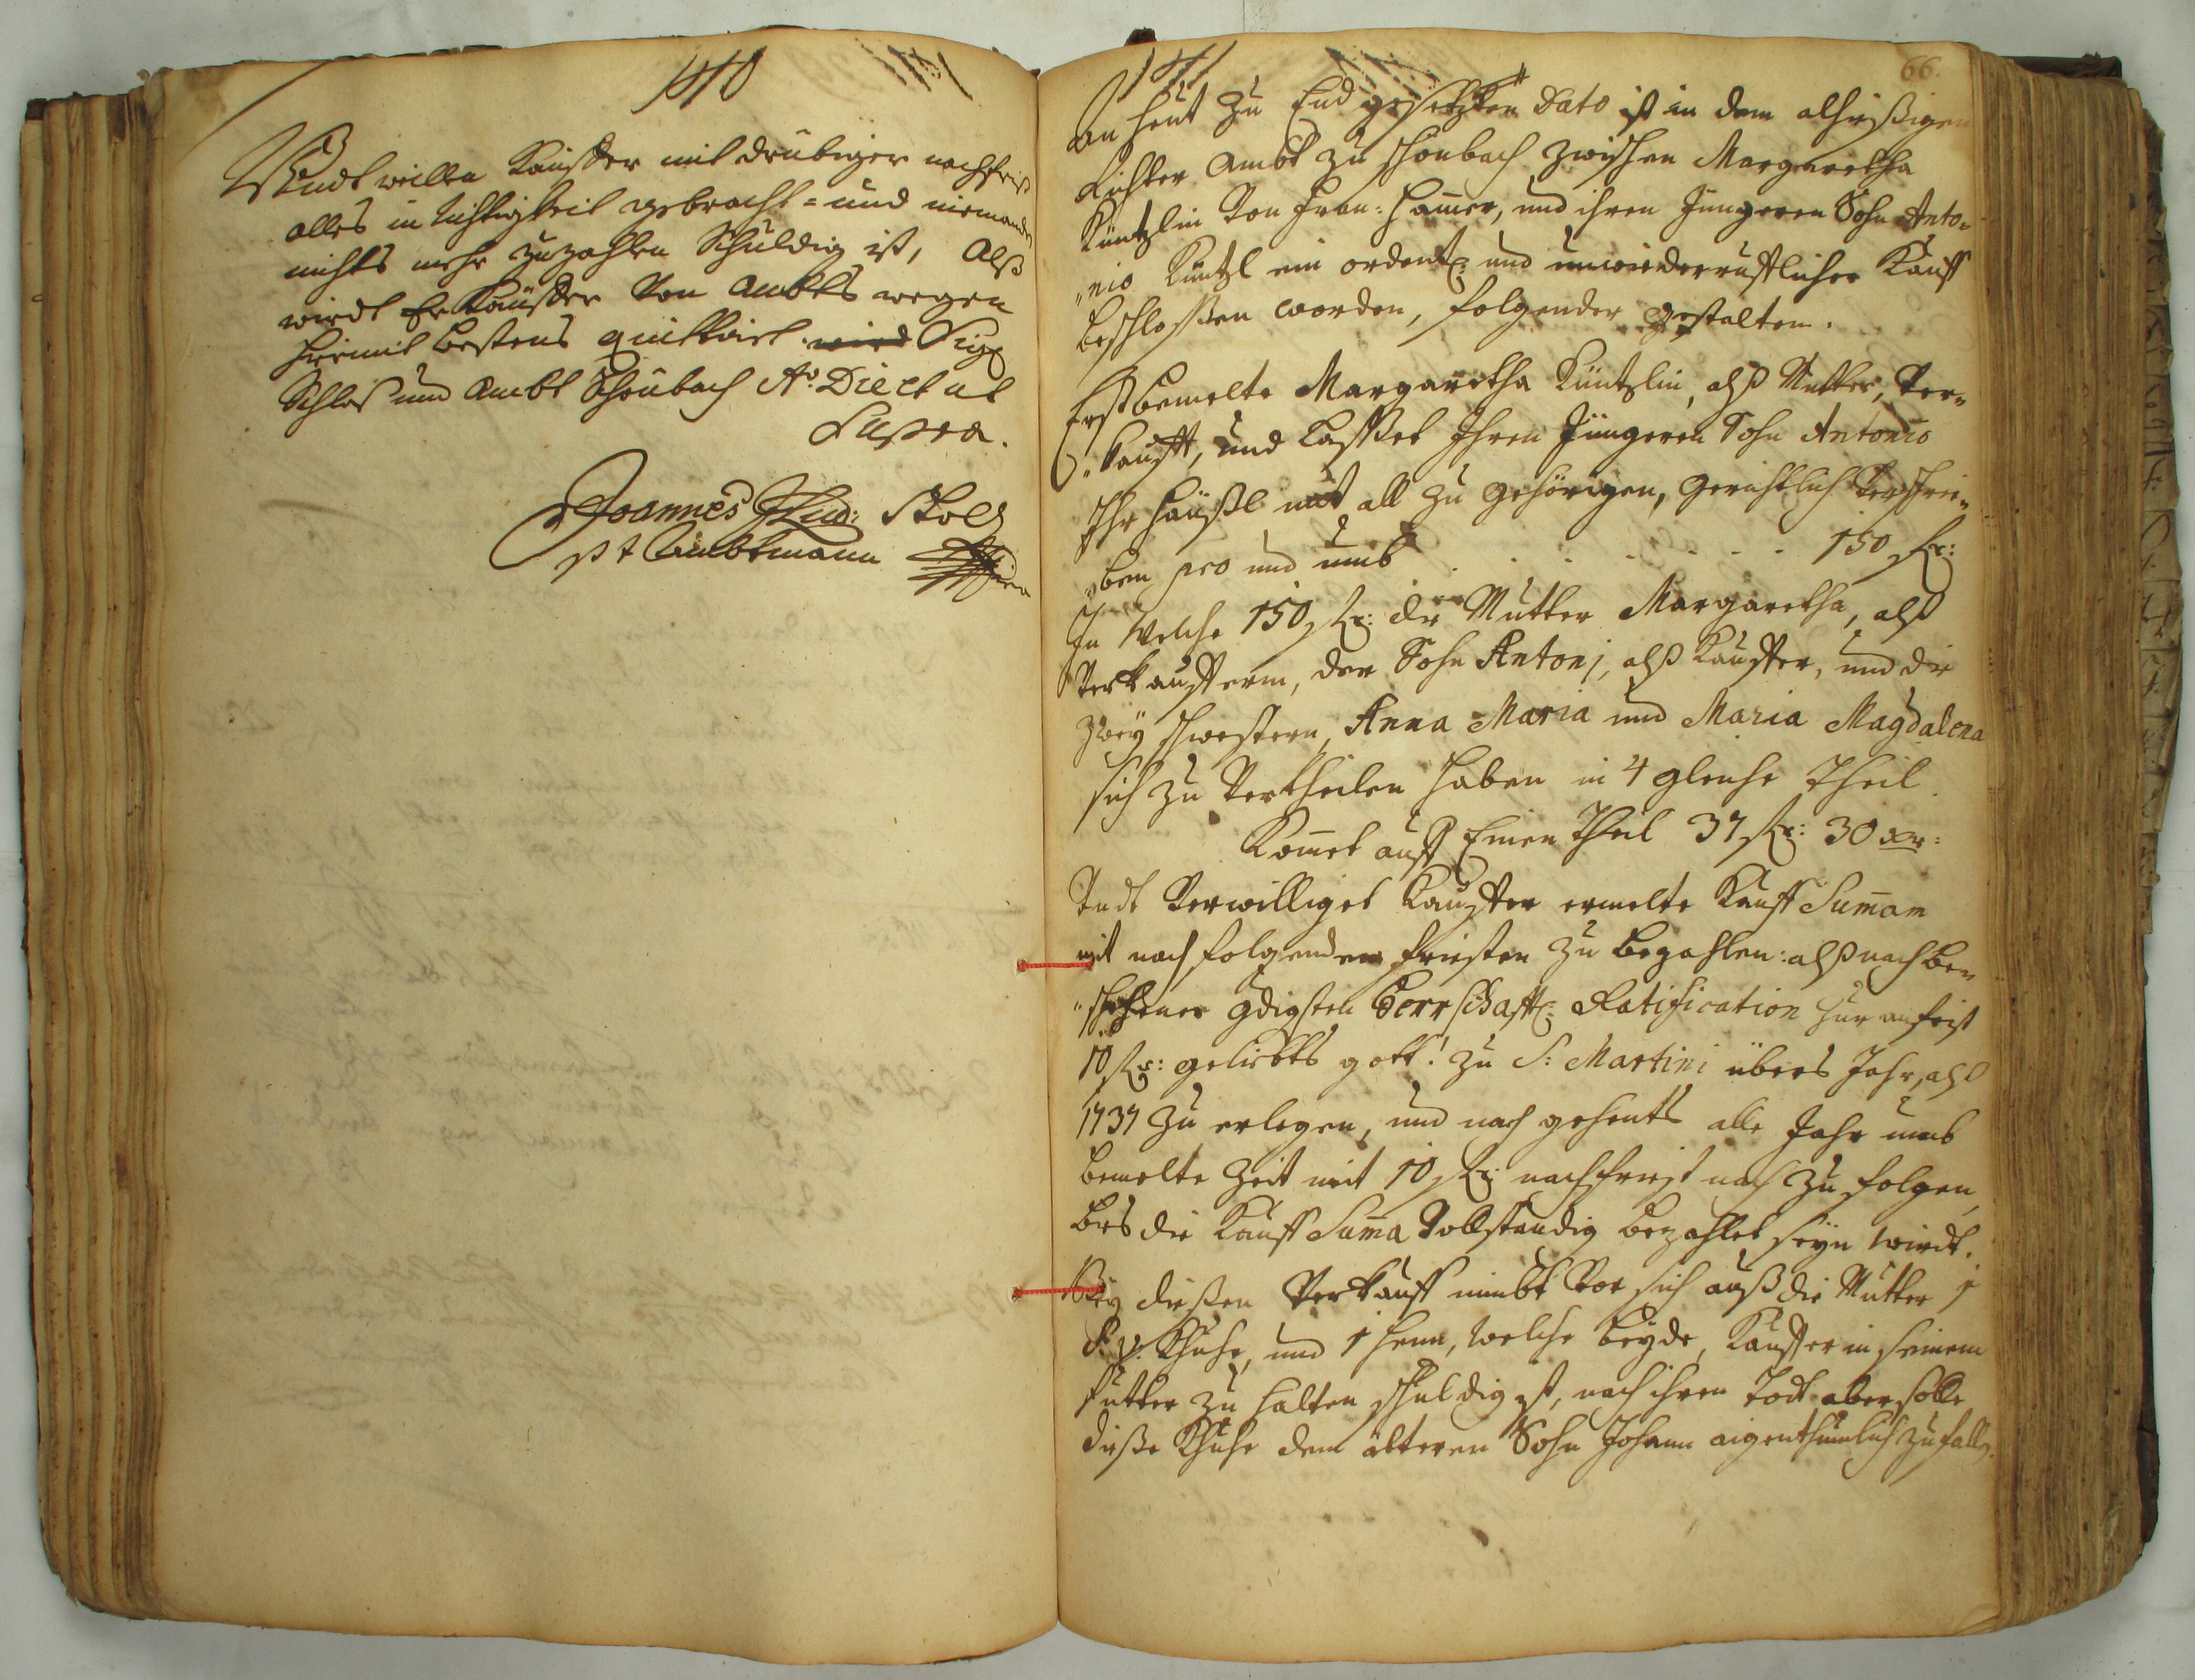 140
Undt weillen Kauffer mit drubiger nachfrist
alles in Richtigkeit gebracht = und niemanden
nichts mehr zuzahlen Schuldig ist, Alß
wirdt Er Kauffer von Ambts wegen
hiermit bestens quittirt. Sig
Schloß und Ambt Schönbach Ao. Die et ut
Supra.
Joannes Stolz
p t Ambtmann
141
66.
An heut zu End gesetzten Dato ist in dem alhießigen
Richter Ambt zu Schönbach zwischen Margaretha
Küntzlin von Frau: Hammer, und ihren Jüngeren Sohn Anto-
"nio Küntzl ein ordentl: und unwiederrufflicher Kauff
beschloßen worden, folgender gestalten.
Erstbemelte Margaretha Küntzlin, alß Mutter, ver-
"kaufft, und Lasset Ihren Jüngeren Sohn Antonio
Ihr Häußl mit all zu gehörigen, gerichtlich verschrie-
"ben pro und umb . . . . . . . 150 fx:
In welche 150 fx: die Mutter Margaretha, alß
Verkaufferin, der Sohn Antonj, alß Kauffer, und die
zwey schwestern, Anna Maria und Maria Magdalena
sich zu vertheilen haben in 4 gleiche Theil.
Kommet auff Einen Theil 37 fx: 30 xr:
Undt verwilliget Kauffer ermelte Kauff Summam
mit nachfolgenden fristen zu bezahlen: alß nach be-
"schehener gdigsten Herrschafftl: Ratification zur anfrist
10 fx: geliebts gott! zu S: Martini übers Jahr, alß
1737 zu erlegen, und nach gehents alle Jahr umb
bemelte Zeit mit 10 fx: nachfrist nach zu folgen,
bis die Kauff Summa vollständig bezahlet seyn wirdt.
Bey dießen Verkauff nimbt vor sich auß die Mutter 1
S: v: Khuhe, und 1 Henn, welche beyde, Kauffer in seinem
futter zu halten schuldig ist, nach ihren Todt aber solle
dieße Khuhe dem älteren Sohn Johann aigenthumlich zufalln.